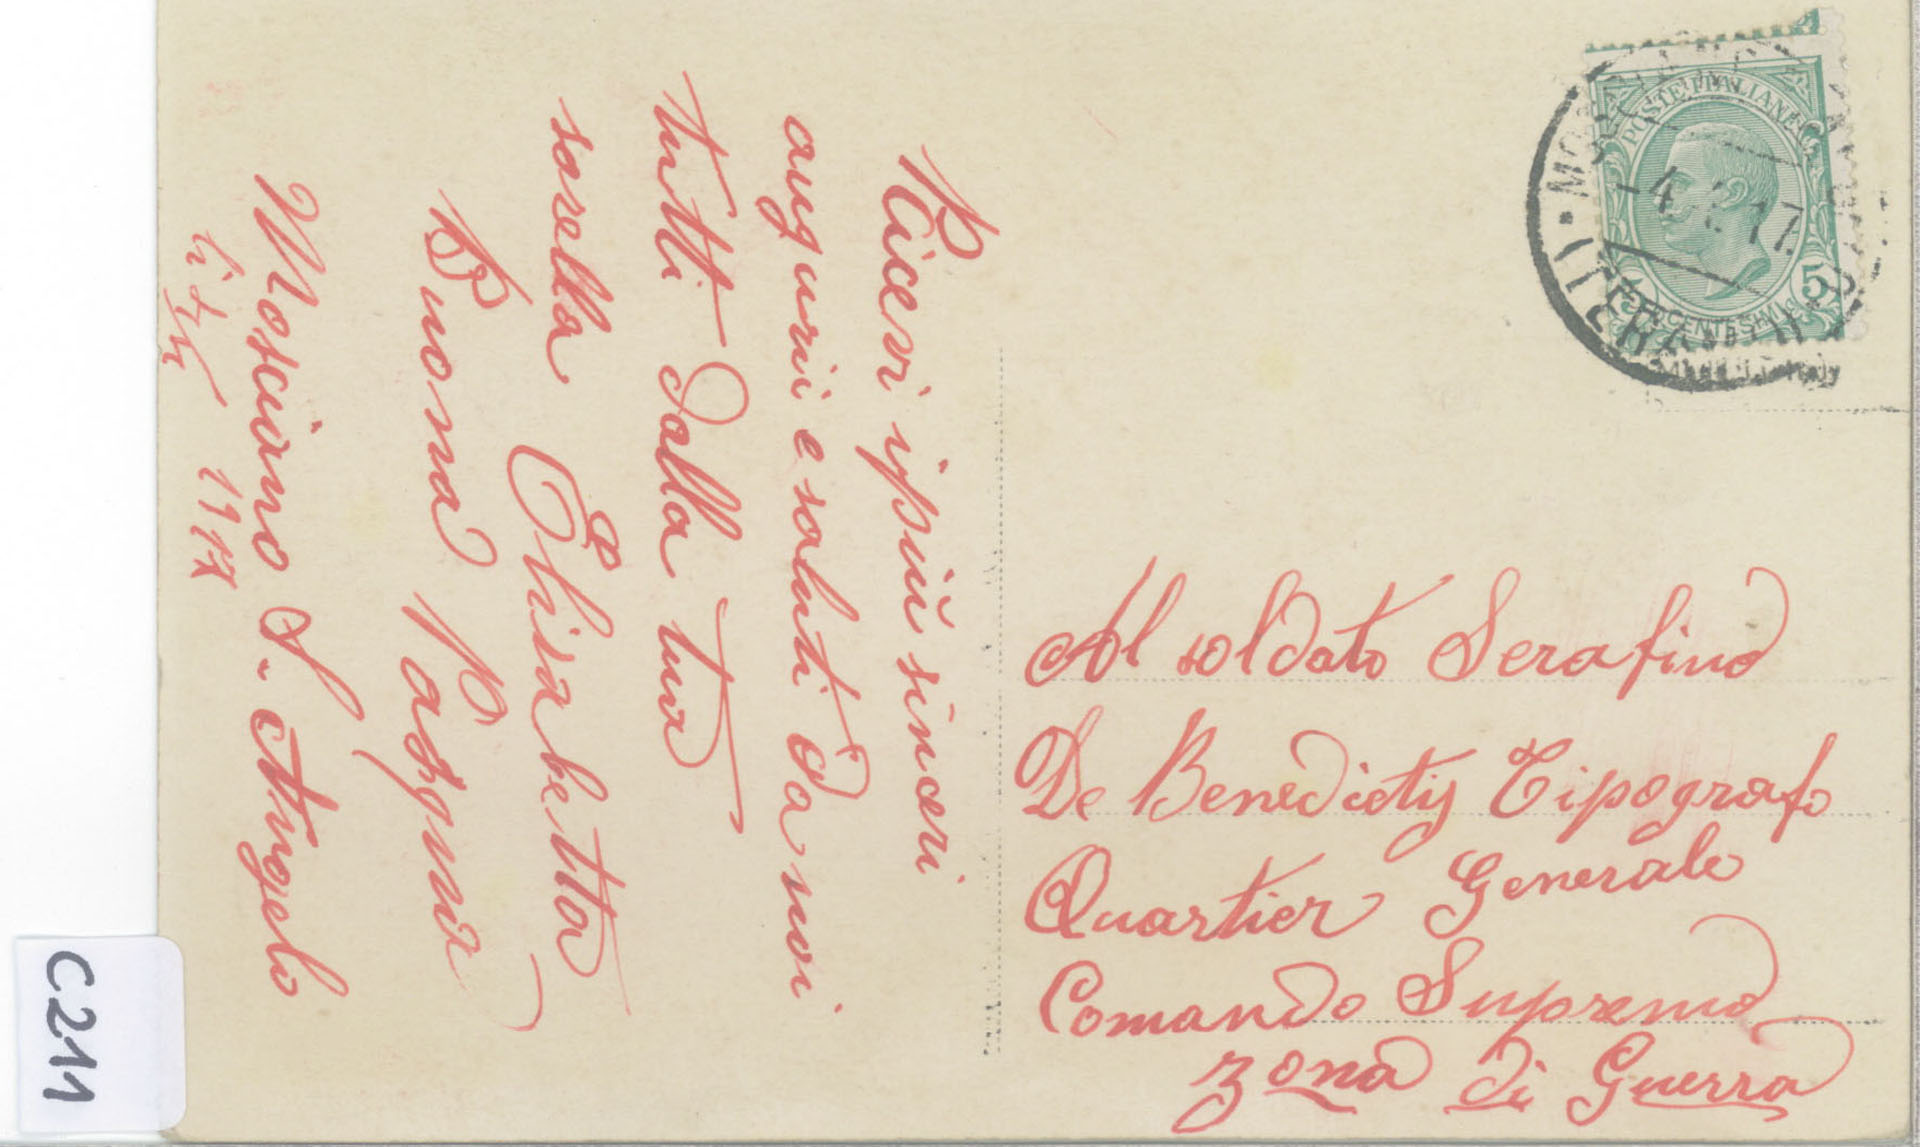 Ricevi i più sinceri
auguri e saluti da noi
tutti dalla tua
sorella Elisabetta
Buona Pasqua
Mosciano S. Angelo
li 1917
POSTE ITALIANE
CENTESIMI 5
-4. 17
(TERAMO)
Al soldato Serafino
De Benedictis Tipografo
Quartier Generale
Comando Supremo
Zona di Guerra
C211